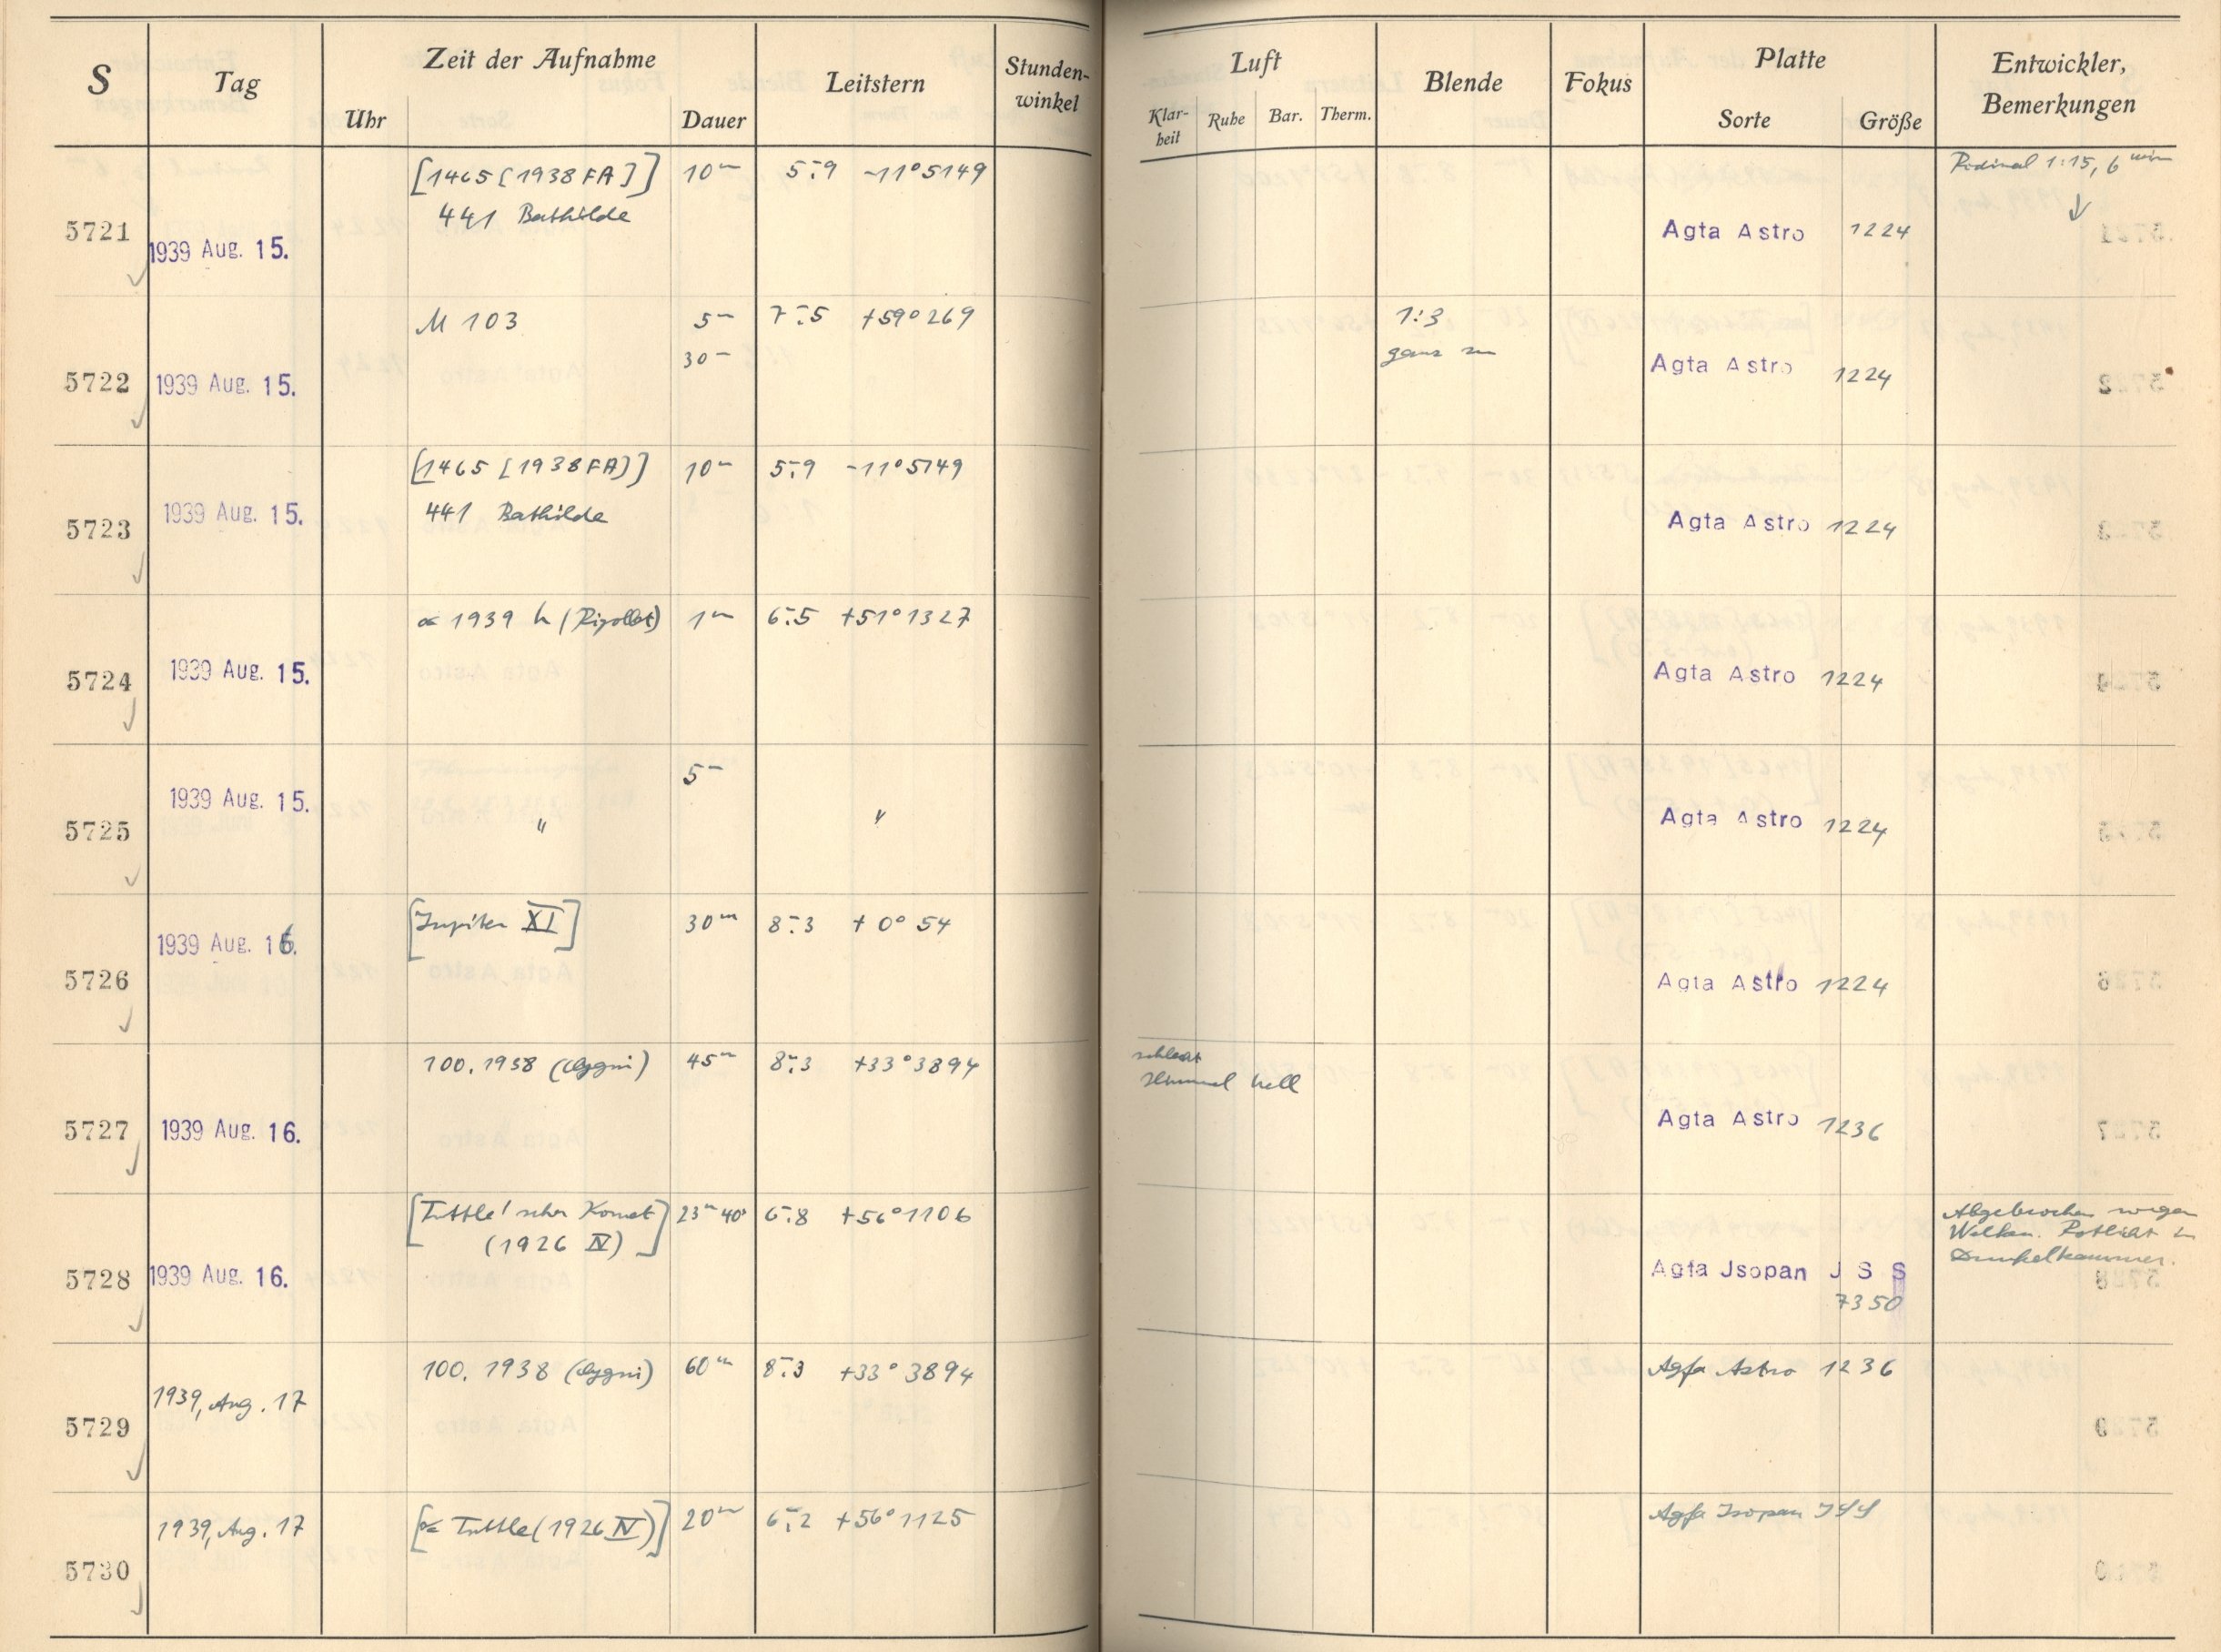 S Tag Zeit der Aufnahme Leitstern Stunden-winkel Luft Blende Fokus Platte Entwickler, Bemerkungen
Uhr Dauer Klar-heit Ruhe Bar. Therm. Sorte Größe
[1465 [1938 FA]] 10m 5m.9 -11°5149 Rodinal 1:15, 6 min
441 Bathilde
5721 1939 Aug. 15. Agfa Astro 1224
M 103 5m 7m.5 +59°269 1:3
30m ganz zu
5722 1939 Aug. 15. Agfa Astro 1224
[1465 [1938 FA)] 10m 5m.9 -11°5149
441 Bathilde
5723 1939 Aug. 15. Agfa Astro 1224
☄ 1939 h (Rigollet) 1m 6m.5 +51°1327
5724 1939 Aug. 15. Agfa Astro 1224
5m
5725 1939 Aug. 15. " " Agfa Astro 1224
[Jupiter XI] 30m 8m.3 +0°54
5726 1939 Aug. 16. Agfa Astro 1224
100.1938 (Cygni) 45m 8m.3 +33°3894 schlecht
Himmel hell
5727 1939 Aug. 16. Agfa Astro 1236
[Tuttle'scher Komet 23m 40s 6m.8 +56°1106 Abgebrochen wegen
(1926 IV)] Wolken. Rotlicht in
Dunkelkammer.
5728 1939 Aug. 16. Agfa Jsopan J S S
7350
100. 1938 (Cygni) 60m 8m.3 +33°3894 Agfa Astro 1236
5729 1939, Aug. 17
5730 1939, Aug. 17 [☄ Tuttle (1926 IV)] 20m 6m.2 +56°1125 Agfa Isopan ISS